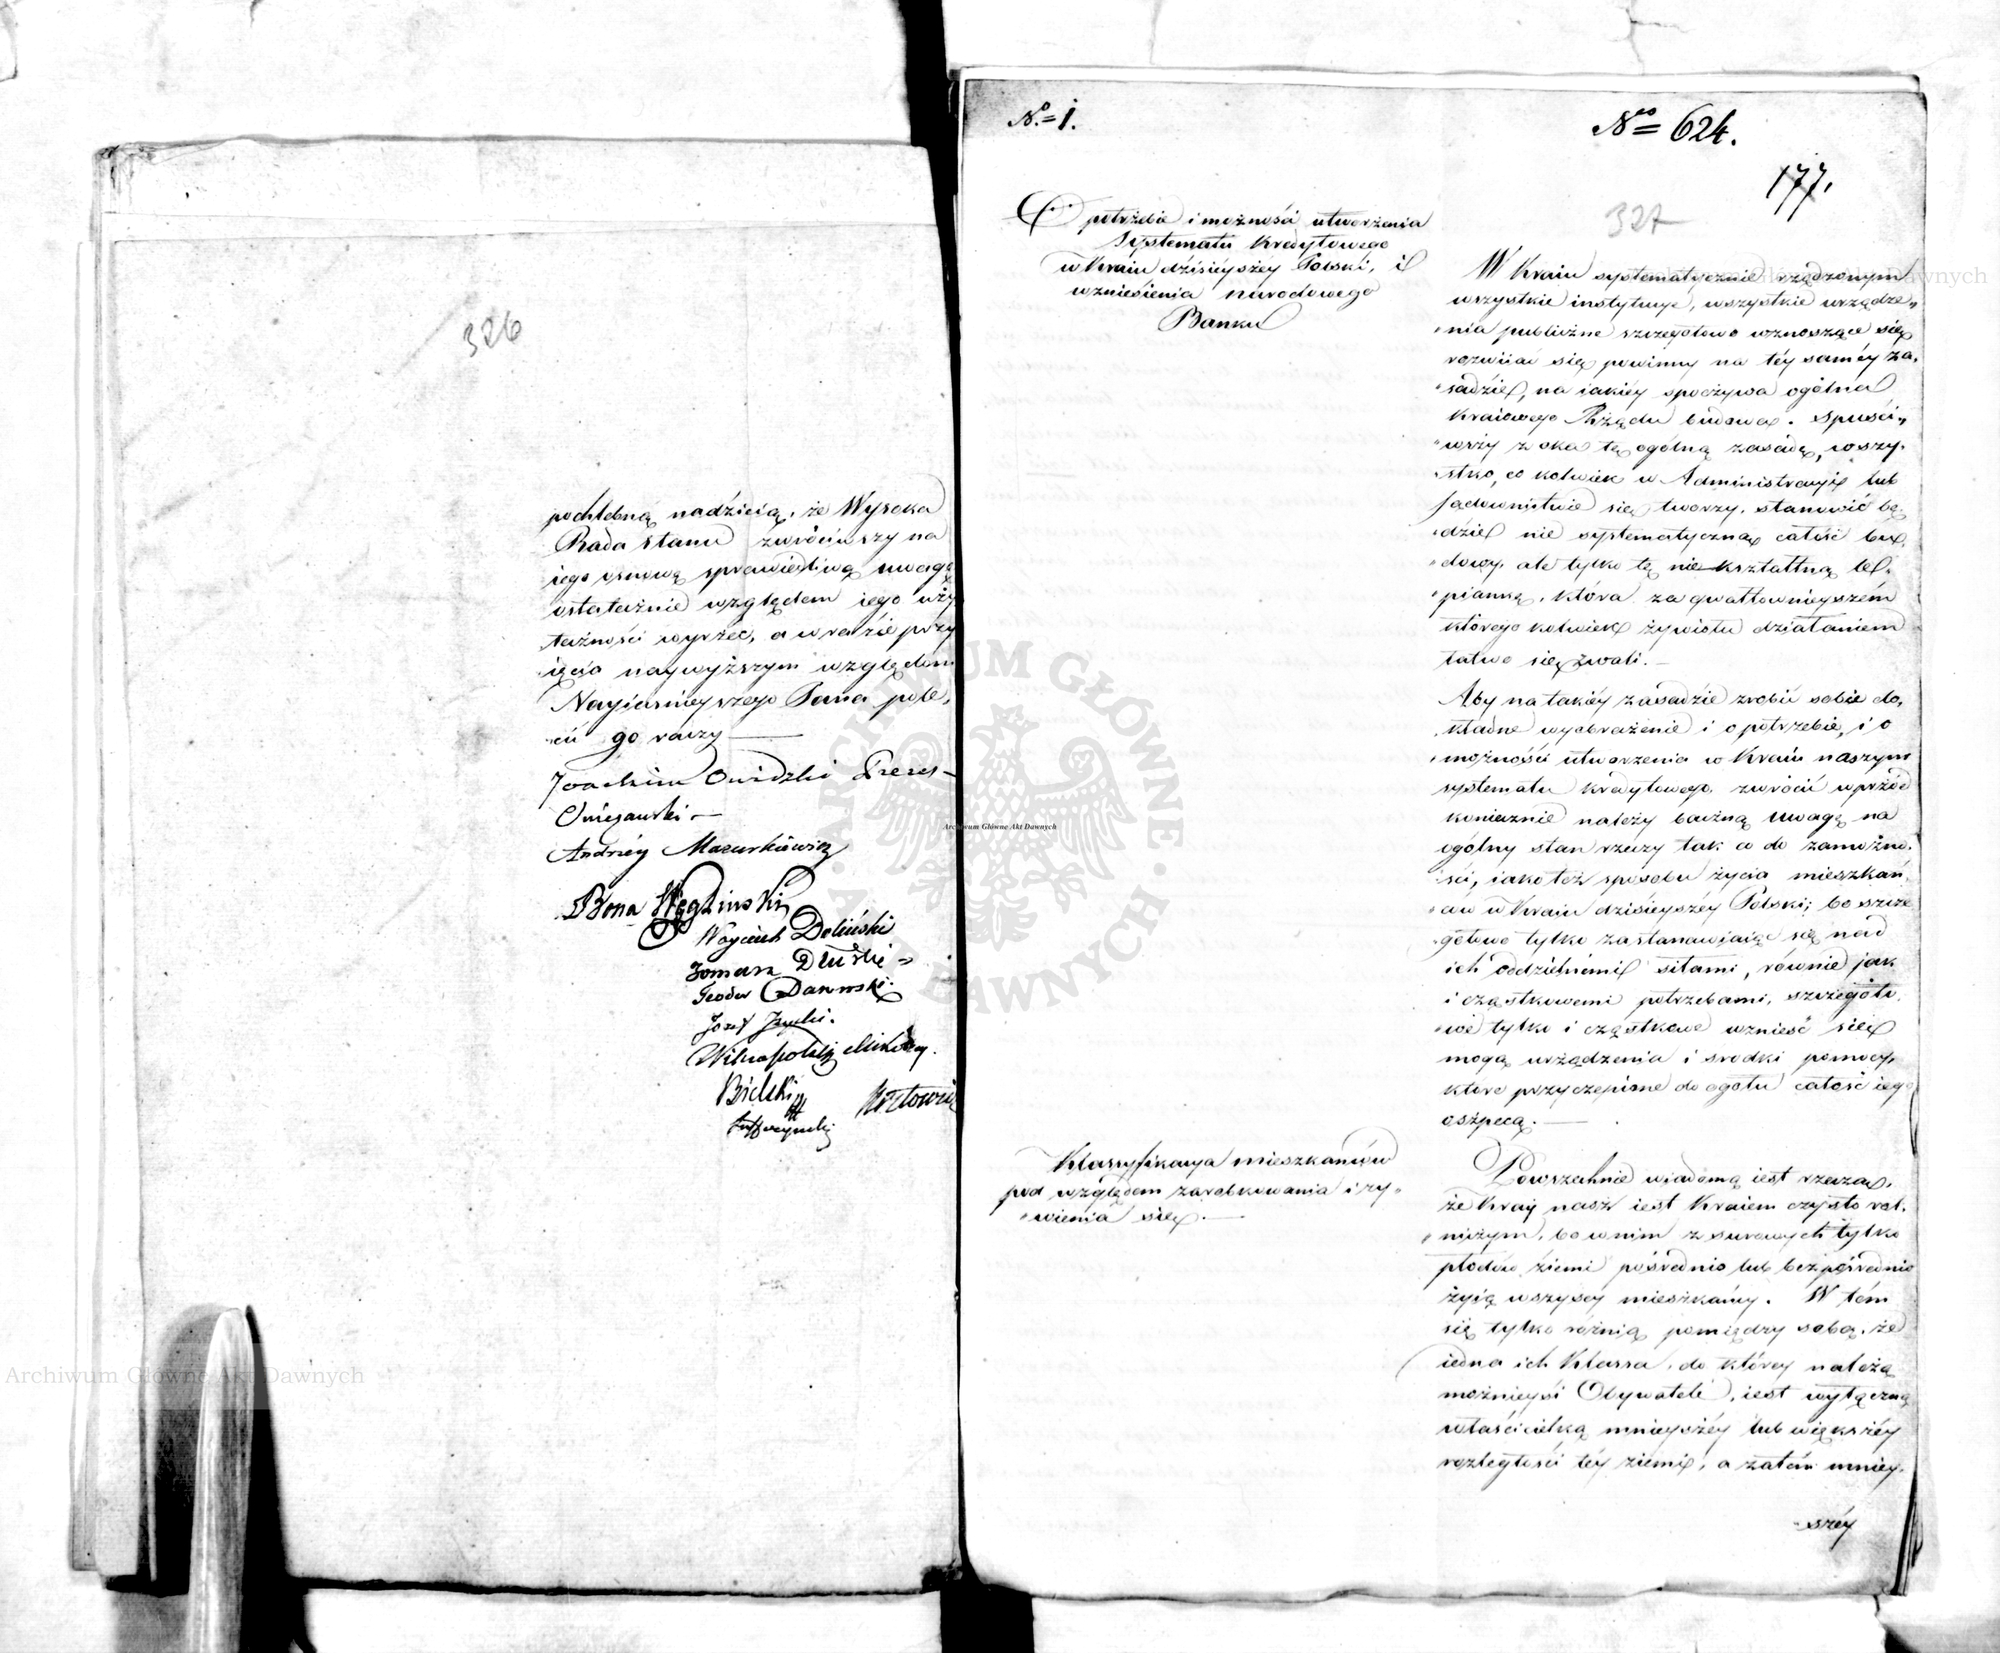 326
pochlebną nadzieią, że Wysoka
Rada Stanu zwróciwszy na
iego osnowę sprawiedliwą uwagę
ostatecznie względem iego uży
teczności wyrzec, a w razie przy
ięcia naywyższym względom
Nayiaśnieyszego Pana pole,
cić go raczy
Joachim Owidzki Prezes
Andrzey Mazurkiewicz
Bona Węgliński
Woyciech Doliński
Tomasz Dłuski
Teodor
Józef
Bielski
No. 1.
O potrzebie i możności utworzenia
Systematu Kredytowego
w Kraiu dzisieyszey Polski, i
wzniesienia narodowego
Banku
Klassyfikacya mieszkańców
pod względem zarobkowania i ży-
wienia się.
No. 624.
177.
327
W Kraiu systematycznie rządzonym
wszystkie instytucye, wszystkie urządze-
nia publiczne szczegółowo wznoszące się
rozwiiać się powinny na téy saméy za-
sadzie, na iakiéy spoczywa ogólna
Kraiowego Rządu budowa. Spuści-
wszy z oka tę ogólną zasadę, wszy-
stko, co kolwiek w Administracyi lub
Sądownictwie się tworzy, stanowić bę
dzie nie systematyczną całość bu
dowy, ale tylko tę niekształtną le-
piankę, która za gwałtownieyszém
którego kolwiek żywiołu działaniem
łatwo się zwali.
Aby na takiéy zasadzie zrobić sobie do-
kładne wyobrażenie i o potrzebie, i o
możności utworzenia w Kraiu naszym
systematu kredytowego, zwrócić wprzód
koniecznie należy baczną uwagę na
ogólny stan rzeczy tak co do zamożno-
ści, iako też sposobu życia mieszkań-
ców w Kraiu dzisieyszéy Polski; bo szcze
gółowo tylko zastanawiaiąc się nad
ich oddzielnémi siłami, równie jak
i cząstkowemi potrzebami, szczegóło-
we tylko i cząstkowe wznieść się
mogą urządzenia i srodki pomocy,
które przyczepione do ogółu całość iego
oszpecą.
Powszechnie wiadomą iest rzeczą,
że Kray nasz iest Kraiem czysto rol-
niczym, bo w nim z surowych tylko
płodów ziemi pośrednio lub bezpośrednio
żyią wszyscy mieszkańcy. W tém
się tylko różnią pomiędzy sobą, że
iedna ich Klassa, do któréy należą
możnieysi Obywatele, iest wyłączną
właścicielką mnieyszéy lub większéy
rozległości téy ziemi, a zatém mniey-
széy
Archiwum Główne Akt Dawnych
ARCHIWUM GŁÓWNE AKT DAWNYCH
Archiwum Główne Akt Dawnych